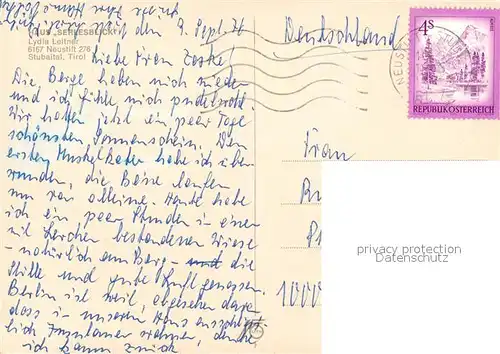 HAUS "SERLESBLICK"
Lydia Leitner
6167 Neustift 276
Stubaital, Tirol
den 9. Sept. 76
Liebe Frau Zaske
Die Berge haben mich wieder
und ich fühle mich pudelwohl.
Wir hatten jetzt ein paar Tage
schönsten Sonnenschein. Den
ersten Muskelkater habe ich über
wunden, die Beine laufen
nun von alleine. Heute habe
ich ein paar Stunden in einer
mit Lärchen bestandenen Wiese
- natürlich am Berg - und die
Stille und gute Luft genossen.
Berlin ist weit, abgesehen davon
dass in unserem Haus ausschließ
lich Insulaner wohnen,
ich kann zurück
Deutschland
4S
REPUBLIK ÖSTERREICH
Frau
1000
privacy protection
Datenschutz